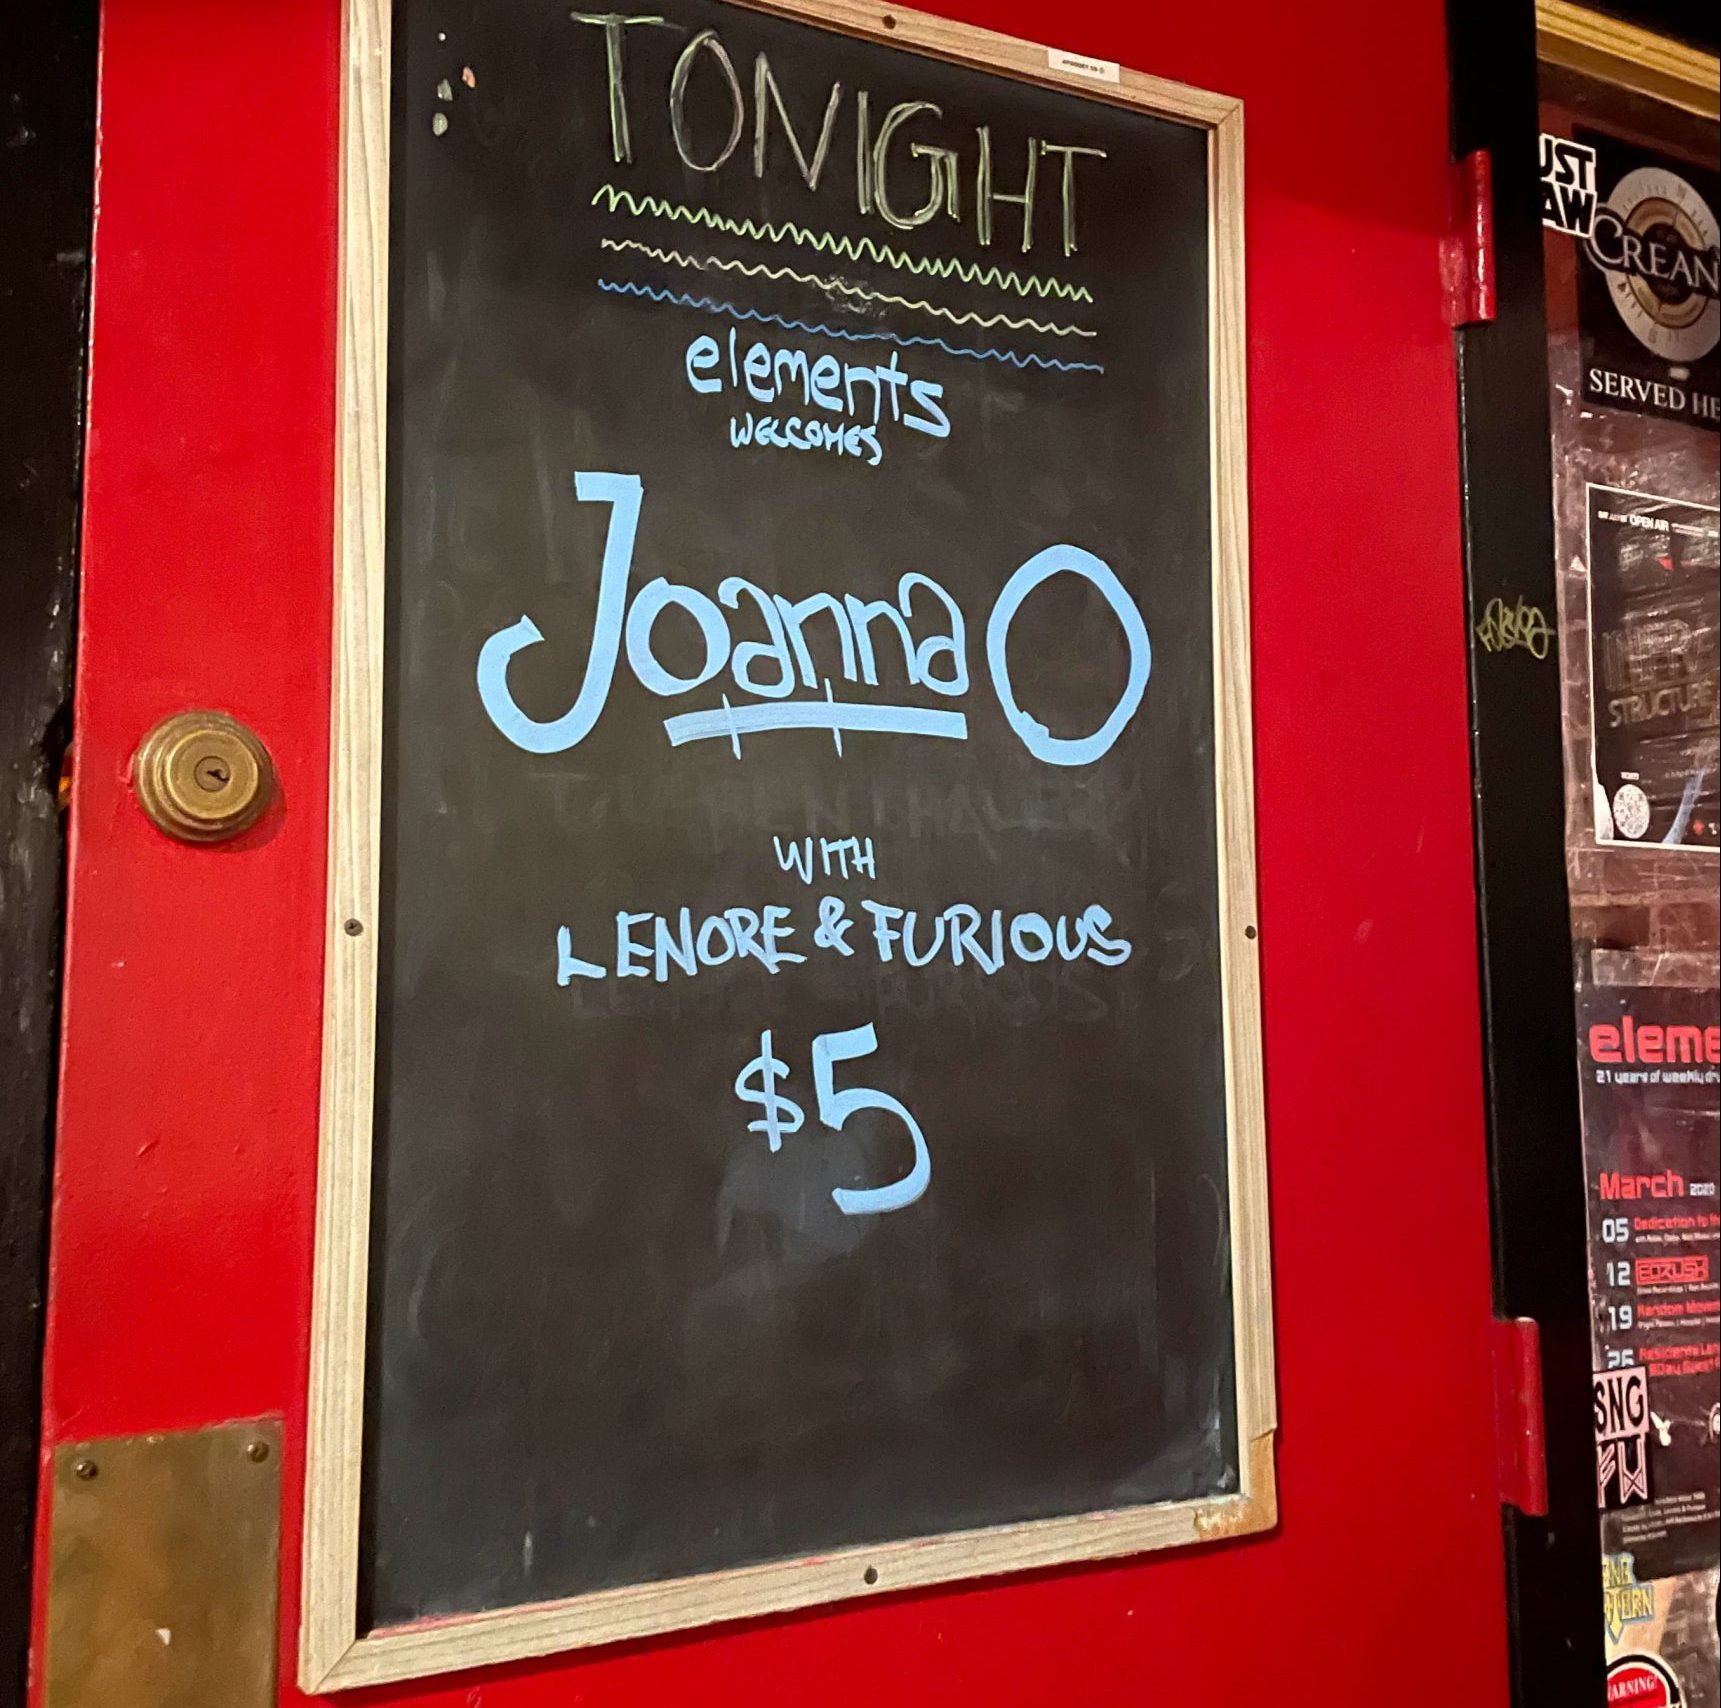 TONIGHT
elements
WELCOMES
Joanna O
WITH
LENORE & FURIOUS
$5
UST
AW
CREAN
SERVED HE
OPEN AIR
STRUCTURE
eleme
21 years of weekly dr
March 2020
05 Dedication to th
12 EDRUSH
19 Random Move
26 Residents
SNG
FW